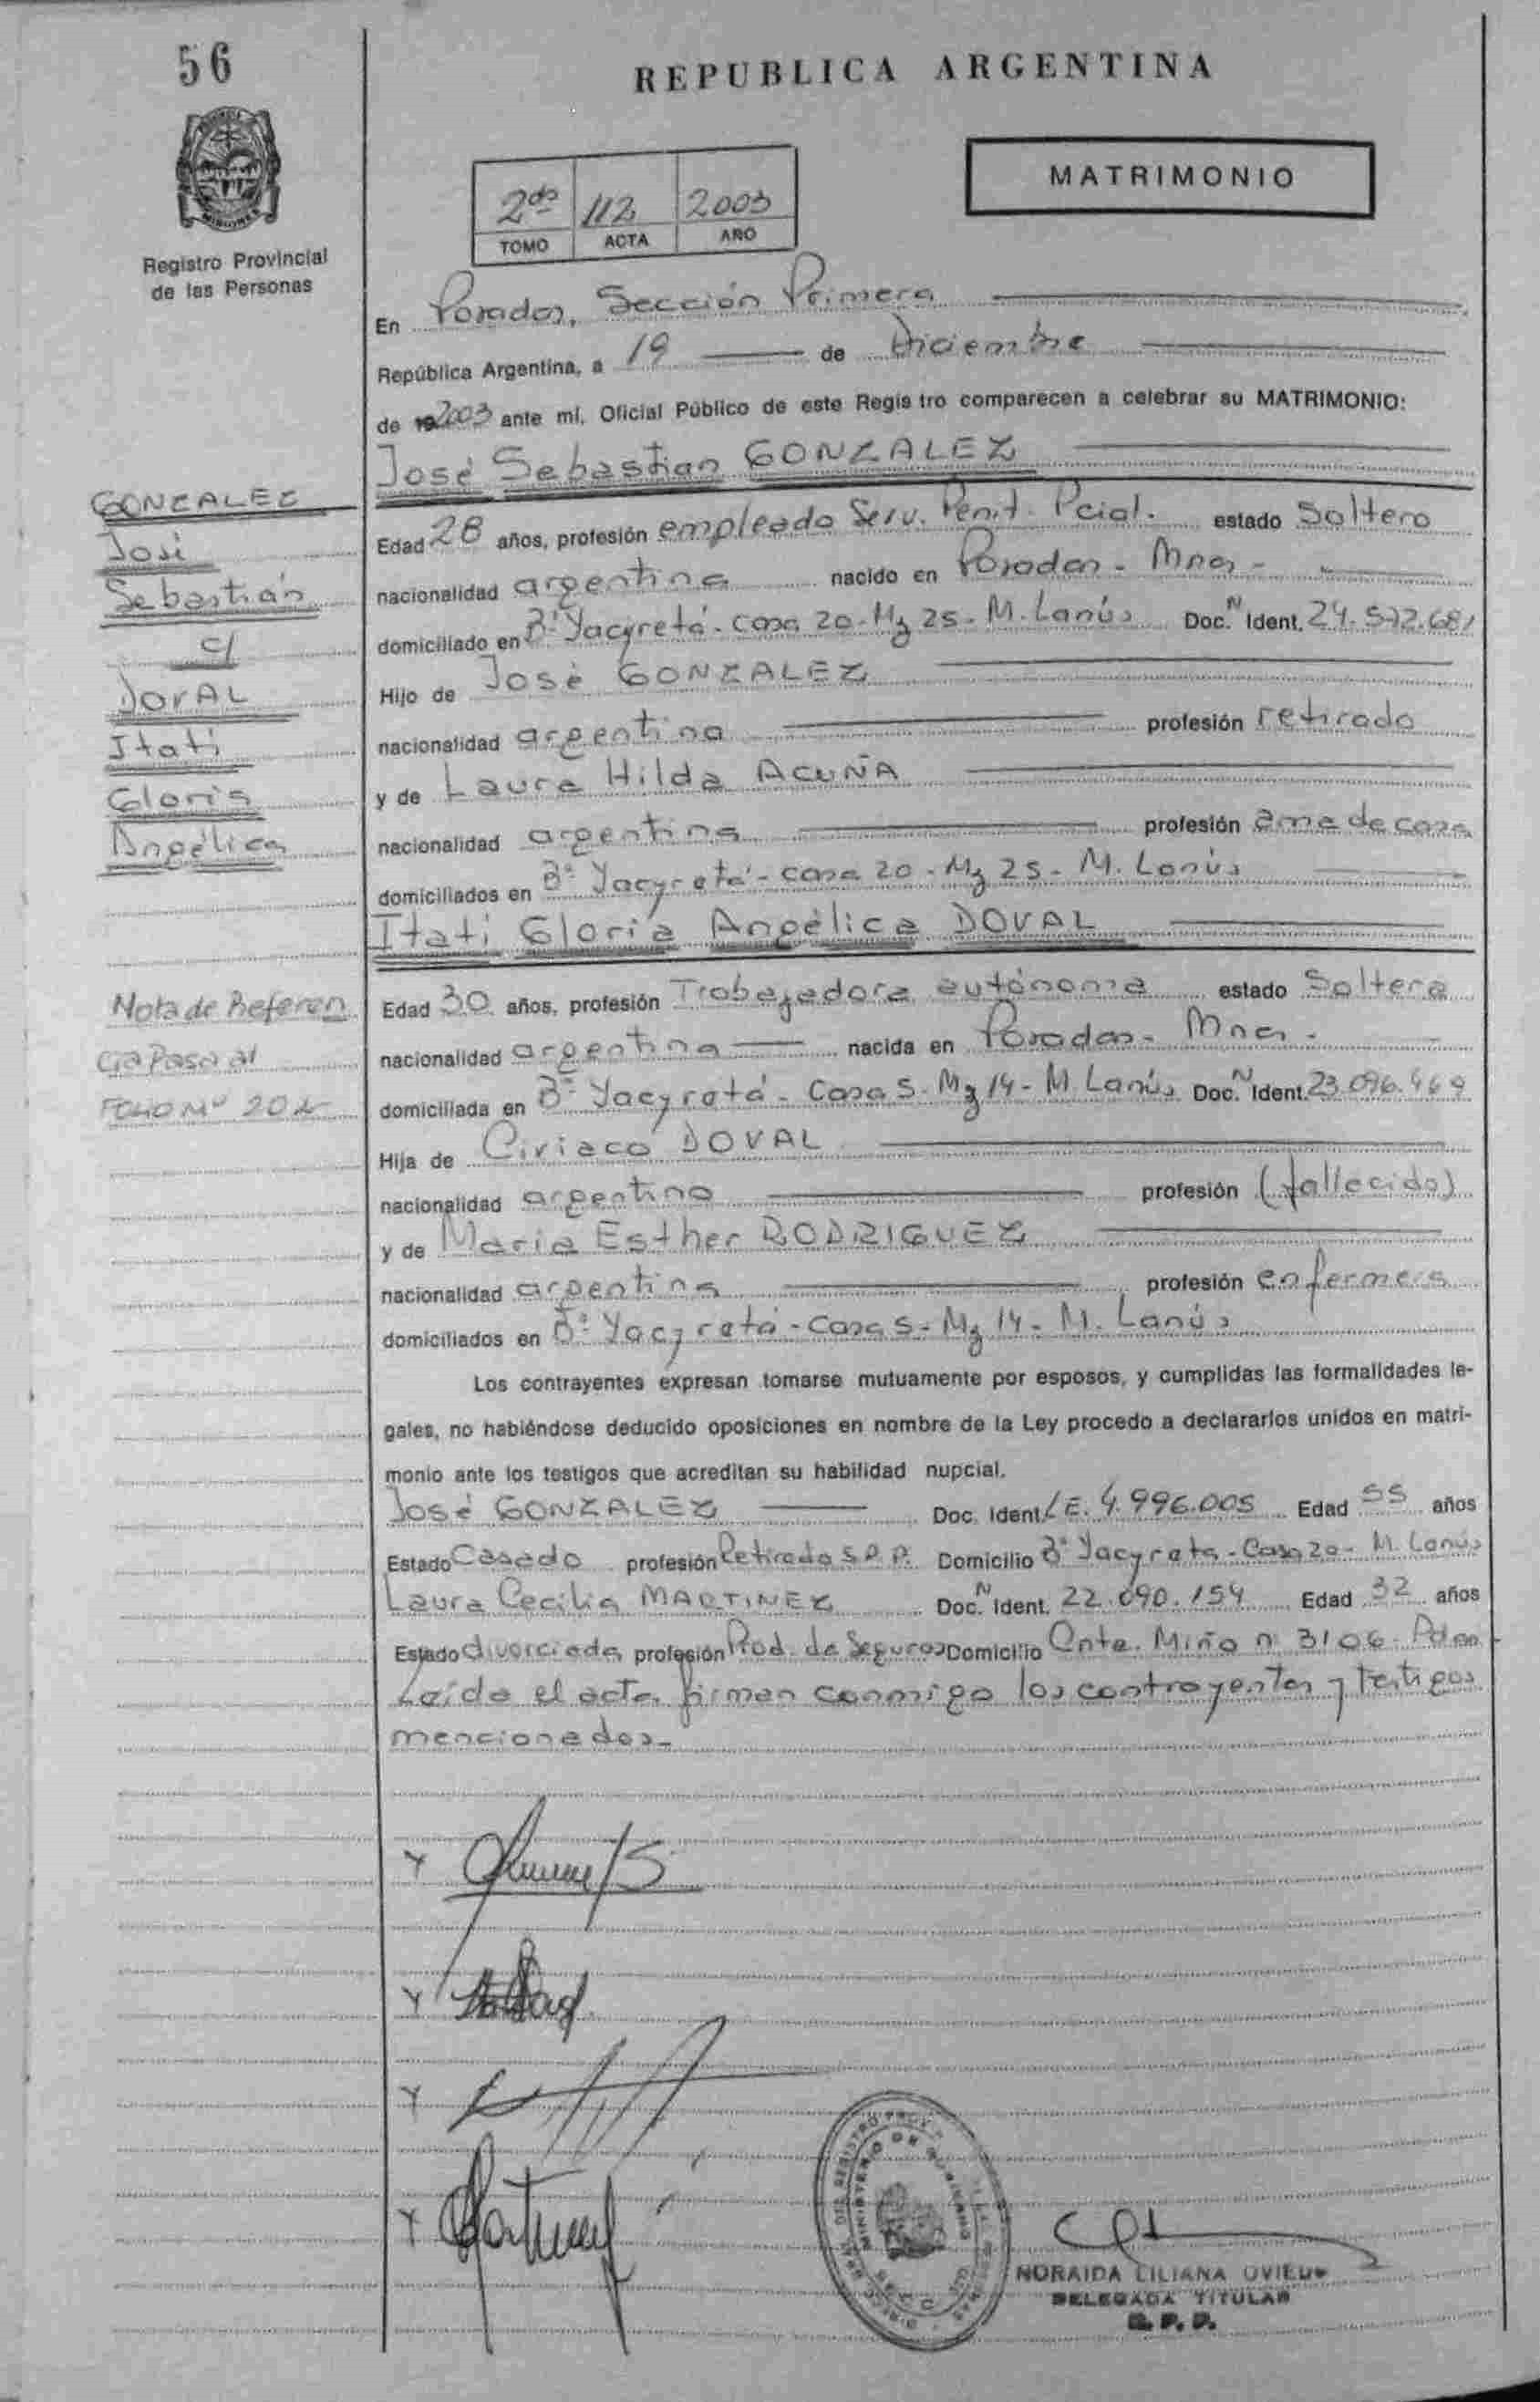 56
REPUBLICA ARGENTINA
MATRIMONIO
2do 112 2003
TOMO ACTA AÑO
Registro Provincial
de las Personas
En Posadas, Sección Primera
República Argentina, a 19 de Diciembre
de 192003 ante mí, Oficial Público de este Registro comparecen a celebrar su MATRIMONIO:
José Sebastian GONZALEZ
GONZALEZ
José
Sebastián
c/
DOVAL
Itatí
Gloria
Angélica
Edad 28 años, profesión empleado Serv. Penit. Pcial. estado Soltero
nacionalidad argentina nacido en Posadas - Mnes -
domiciliado en Bº Yacyretá - casa 20 - Mz 25 - M. Lanús Doc. N Ident. 24.572.681
Hijo de José GONZALEZ
nacionalidad argentina profesión retirado
y de Laura Hilda ACUÑA
nacionalidad argentina profesión ama de casa
domiciliados en Bº Yacyretá - casa 20 - Mz 25 - M. Lanús
Itatí Gloria Angélica DOVAL
Nota de Referen
cia Pasa al
FOLIO Nº
Edad 30 años, profesión Trabajadora autónoma estado Soltera
nacionalidad argentina nacida en Posadas - Mnes -
domiciliada en Bº Yacyretá - Casa 5 - Mz 14 - M. Lanús Doc. N Ident. 23.096.469
Hija de Ciriaco DOVAL
nacionalidad argentino profesión (fallecido)
y de Maria Esther RODRIGUEZ
nacionalidad argentina profesión enfermera
domiciliados en Bº Yacyretá - casa 5 - Mz 14 - M. Lanús
Los contrayentes expresan tomarse mutuamente por esposos, y cumplidas las formalidades le-
gales, no habiéndose deducido oposiciones en nombre de la Ley procedo a declararlos unidos en matri-
monio ante los testigos que acreditan su habilidad nupcial.
José GONZALEZ Doc. Ident. LE. 4.996.005 Edad 55 años
Estado Casado profesión Retirado S.P.P. Domicilio Bº Yacyreta - Casa 20 - M. Lanús
Laura Cecilia MARTINEZ Doc. N Ident. 22.090.154 Edad 32 años
Estado divorciada profesión Prod. de Seguros Domicilio Cnte. Miño nº 3106 - Pdas -
Leída el acta, firman conmigo los contrayentes y testigos
mencionados -
NORAIDA LILIANA OVIEDO
DELEGADA TITULAR
R. P. P.